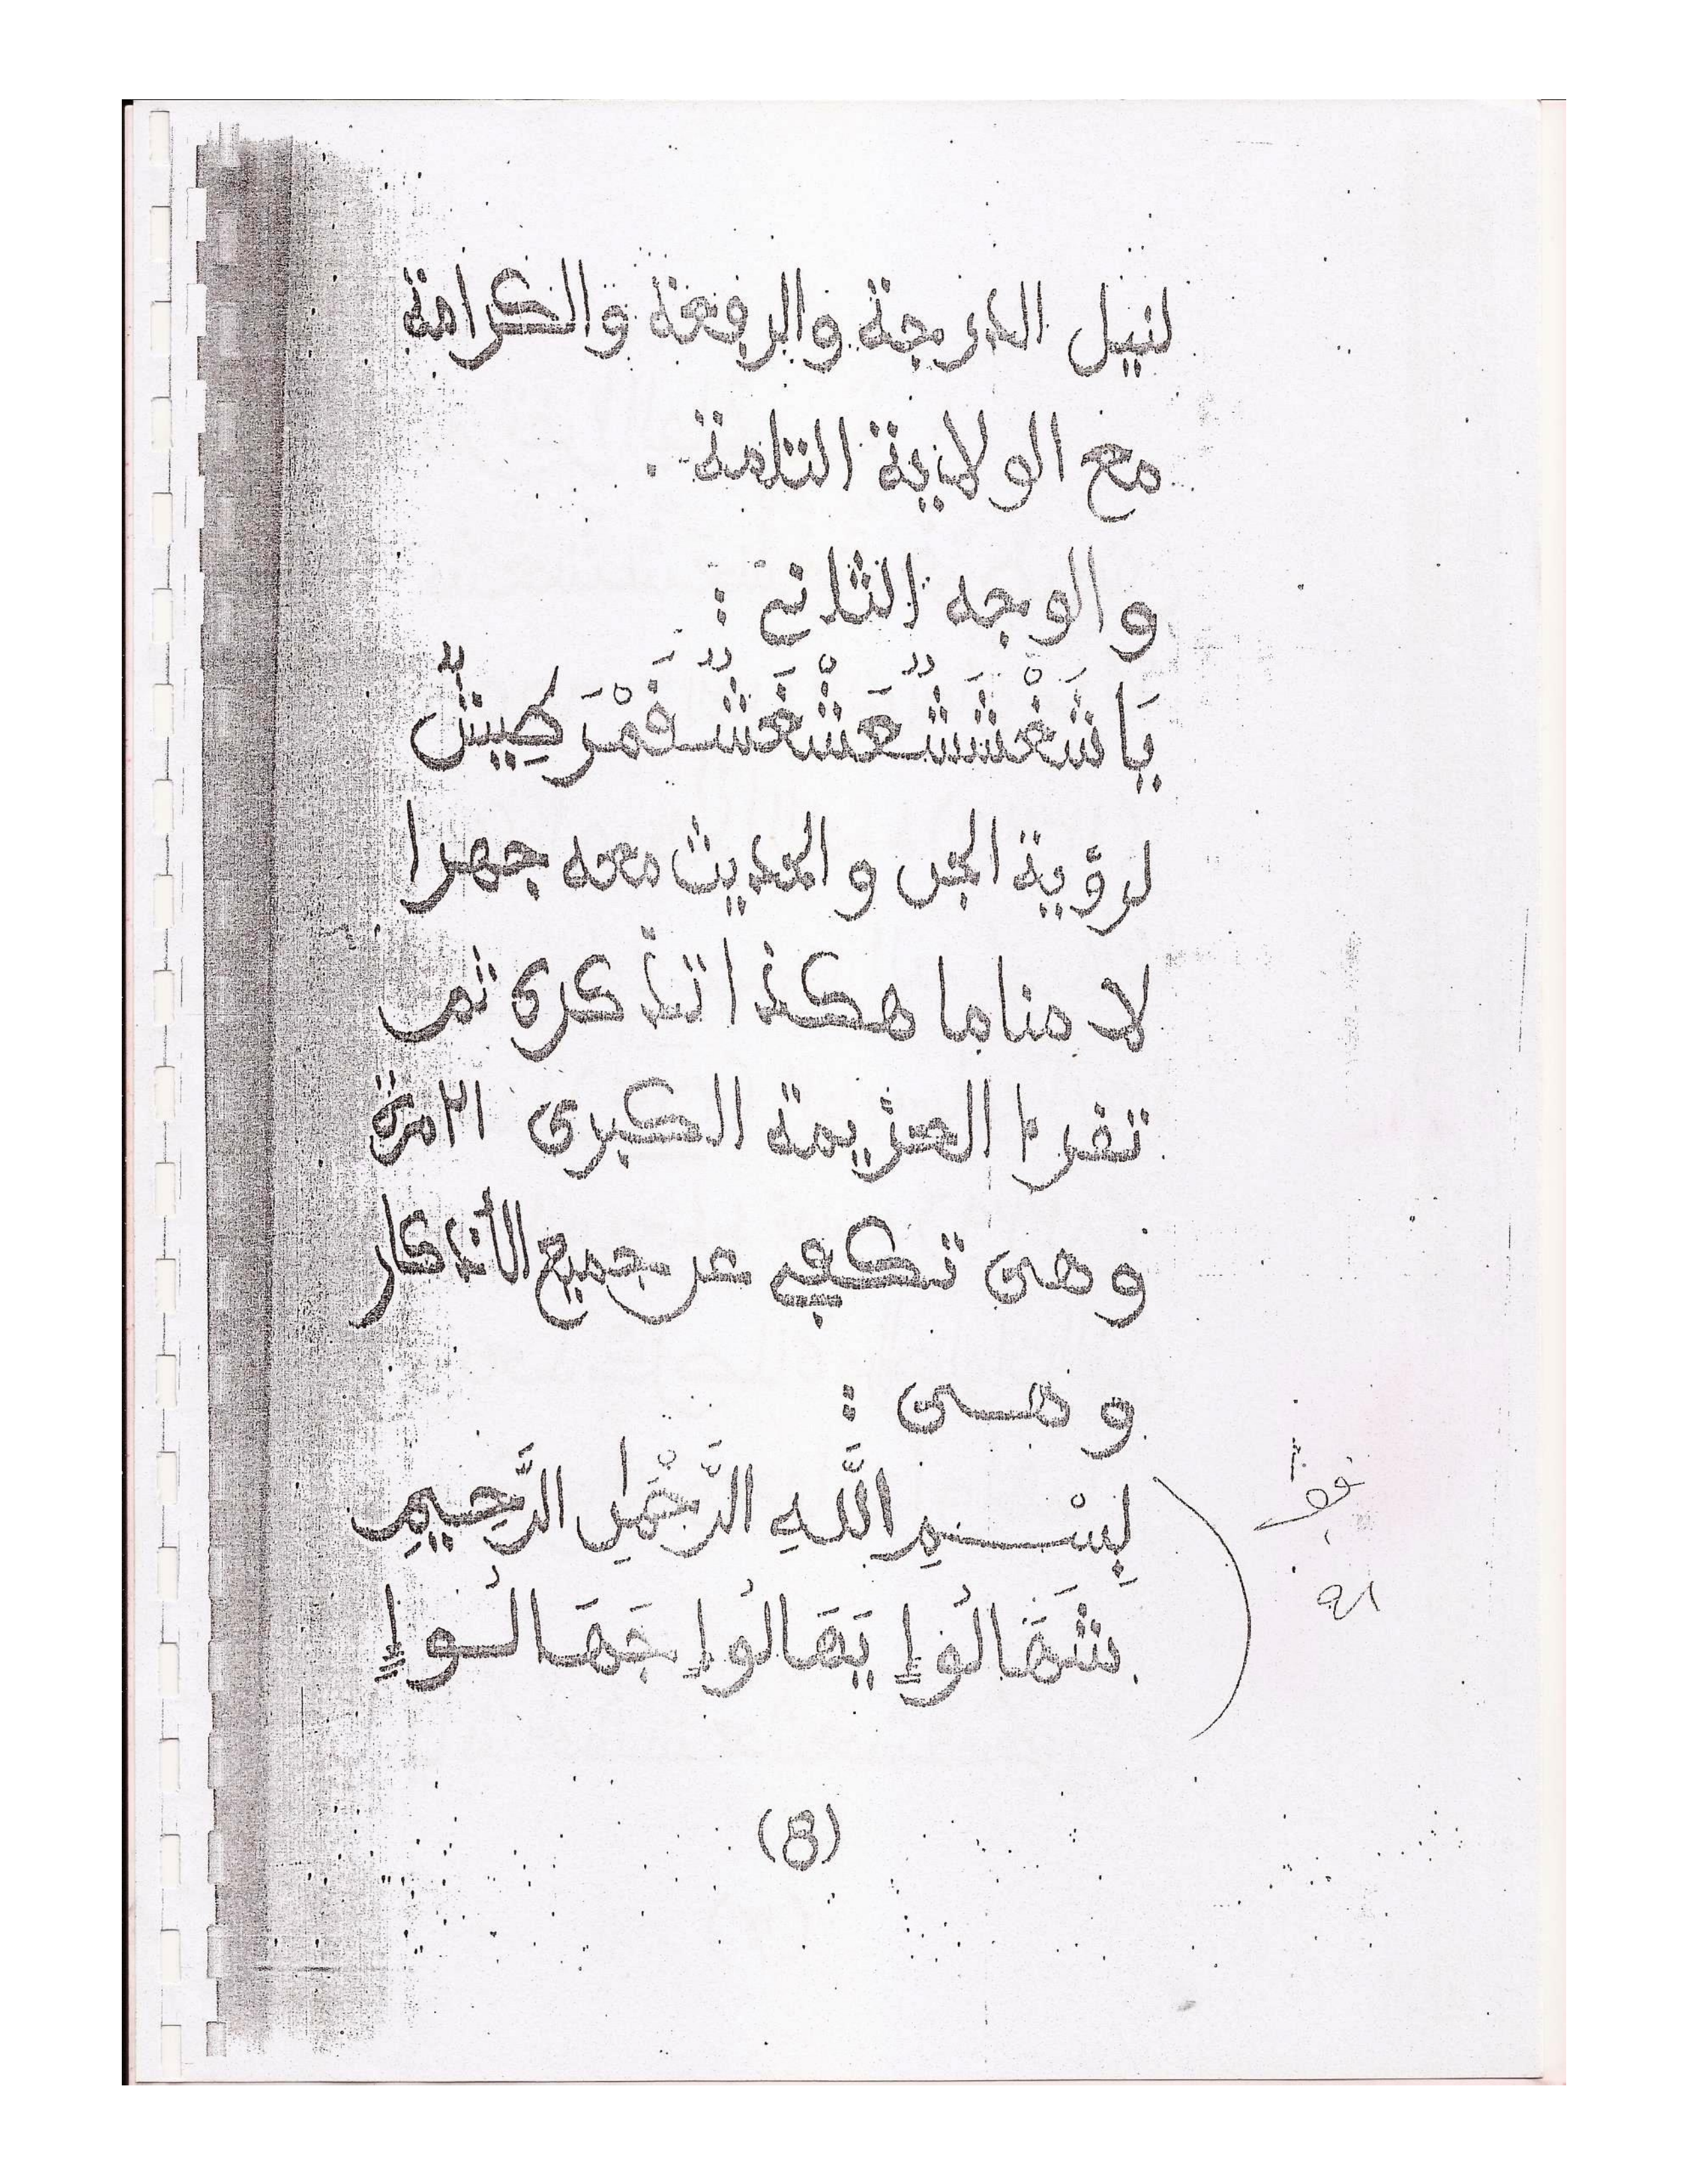 لنيل الدرجة والرفعة والكرامة
مع الولاية التامة .
والوجه الثاني :
يَا شَغْشَشُعَشْغَشُفَمْرَطِيشٌ
لرؤية الجن والحديث معه جهرا
لا مناما هكذا تذكرى ثم
تقرأ العزيمة الكبرى ٢١ مرة
وهى تكفي عن جميع الأذكار
وهى :
بِسْمِ اللَّهِ الرَّحْمٰنِ الرَّحِيمِ
شَهَالُواٍ يَهَالُواٍ جَهَالُواٍ
(8)